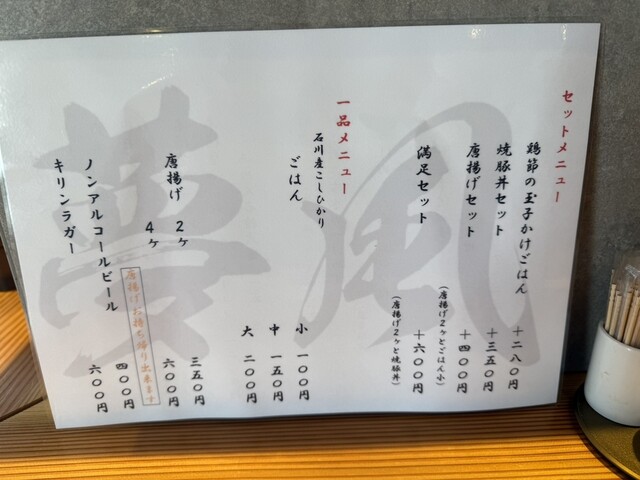 セットメニュー
鶏節の玉子かけごはん 十二八〇円
焼豚丼セット 十三五〇円
唐揚げセット 十四〇〇円
(唐揚げ2ヶとごはん小)
満足セット 十六〇〇円
(唐揚げ2ヶと焼豚丼)
一品メニュー
石川産こしひかり
ごはん
小 一〇〇円
中 一五〇円
大 二〇〇円
唐揚げ 2ヶ 三五〇円
4ヶ 六〇〇円
唐揚げお持ち帰り出来ます
ノンアルコールビール 四〇〇円
キリンラガー 六〇〇円
夢風